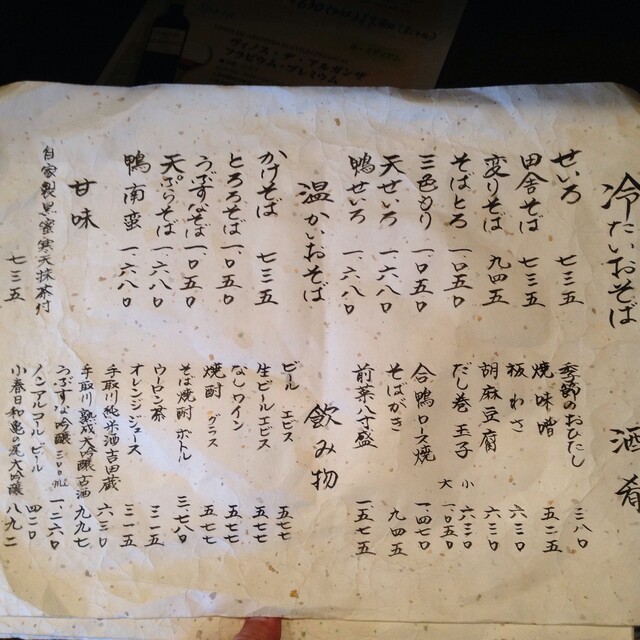 冷たいおそば
せいろ 七三五
田舎そば 七三五
変りそば 九四五
そばとろ 一、〇五〇
三色もり 一、〇五〇
天せいろ 一、六八〇
鴨せいろ 一、六八〇
温かいおそば
かけそば 七三五
とろろそば 一、〇五〇
うぶすなそば 一、〇五〇
天ぷらそば 一、六八〇
鴨南蛮 一、六八〇
甘味
自家製黒蜜寒天抹茶付 七三五
酒肴
季節のおひたし 三八〇
焼味噌 五二五
板わさ 六三〇
胡麻豆腐 六三〇
だし巻玉子 小 六三〇
大 一、〇五〇
合鴨ロース焼 一、四七〇
そばがき 九四五
前菜八寸盛 一、五七五
飲み物
ビール エビス 五七七
生ビールエビス 五七七
なしワイン 五七七
焼酎 グラス 五七七
そば焼酎 ボトル 三、七八〇
ウーロン茶 三一五
オレンジジュース 三一五
手取川純米酒吉田蔵 六三〇
手取川 熟成大吟醸古酒 九九七
うぶすな吟醸 三〇〇ml 一、二六〇
ノンアルコールビール 四二〇
小春日和亀の尾大吟醸 八九二